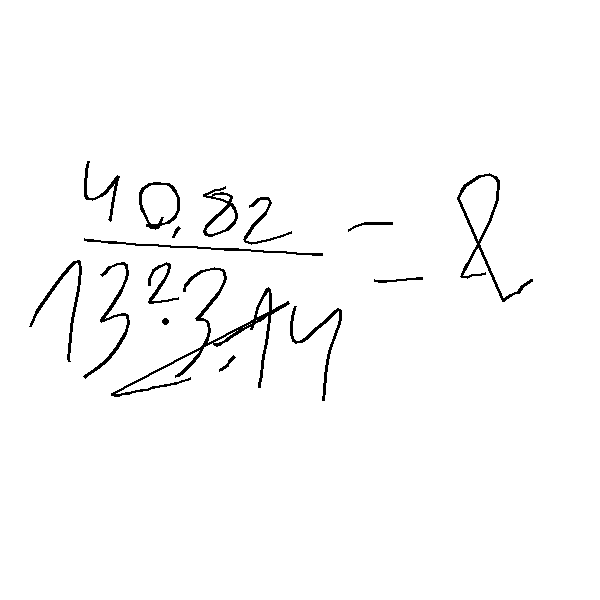 40,82
13²·3,14 = &